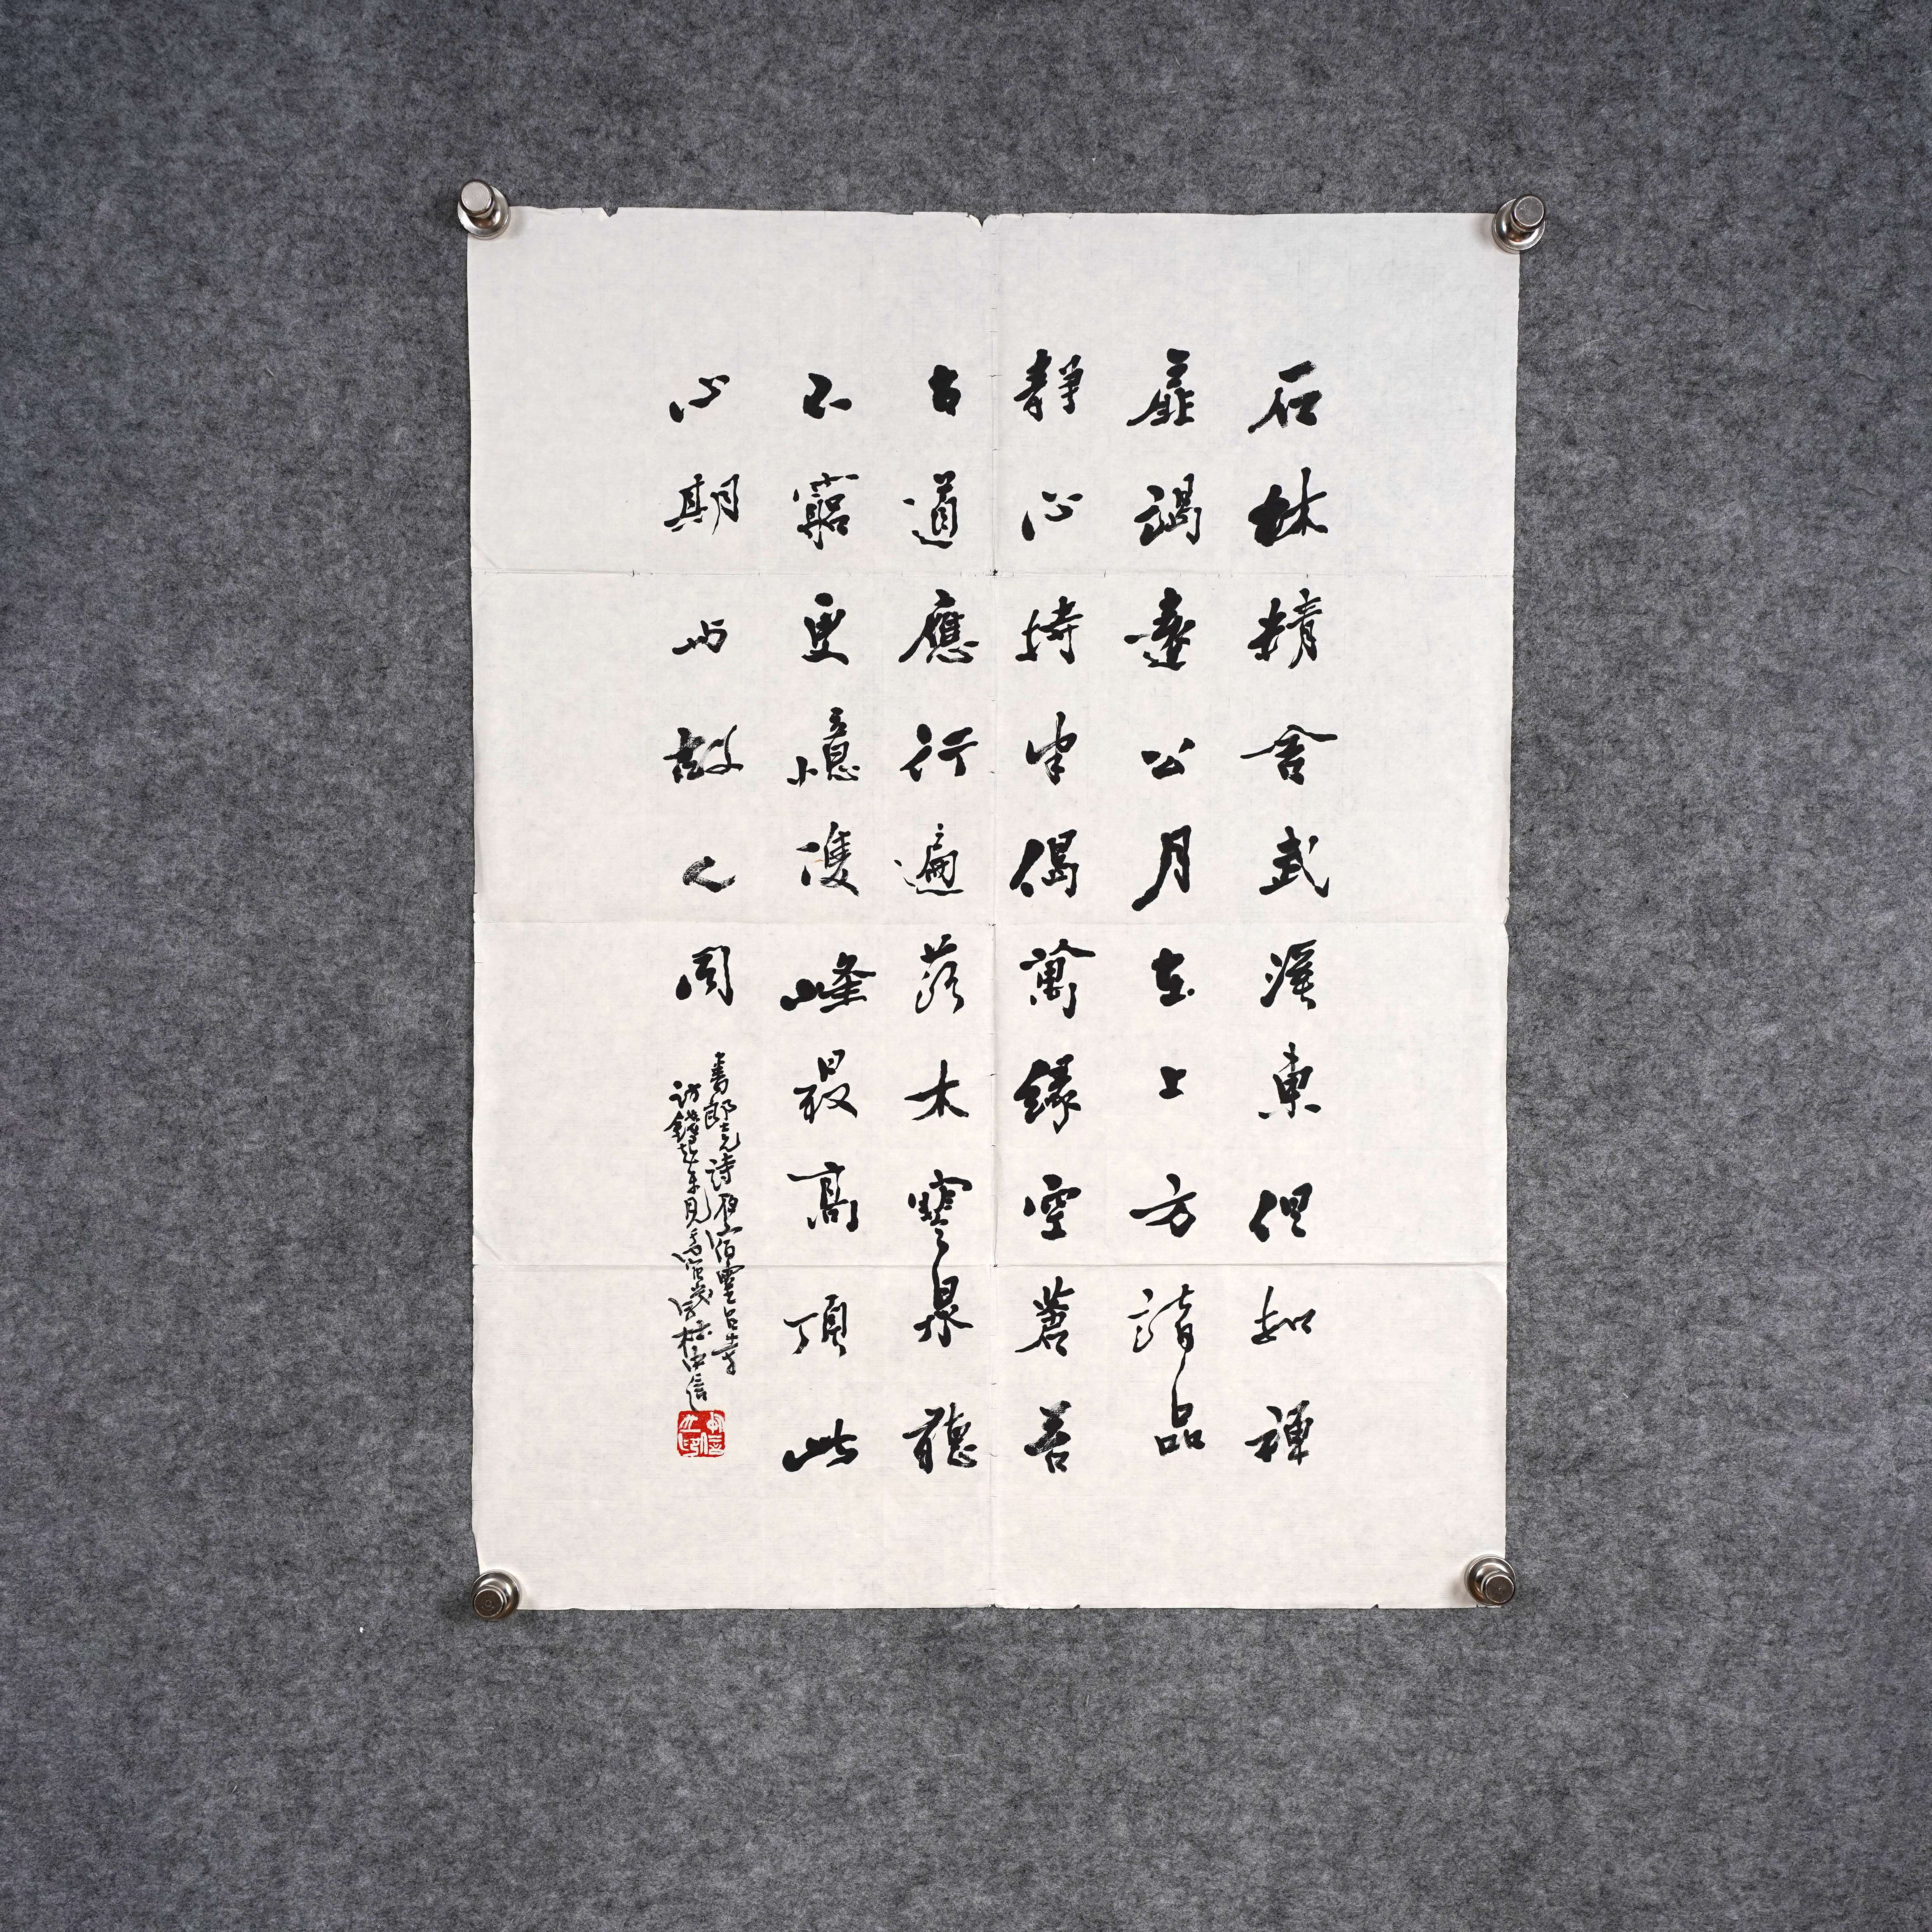 石林精舍武溪東夜扣禪
扉謁遠公月在上方諸品
靜心持半偈萬緣空蒼苔
古道應行遍落木寒泉聽
不窮更憶雙峰最高頂此
心期與故人同
書郎士元詩夜宿靈台寺
杜中信